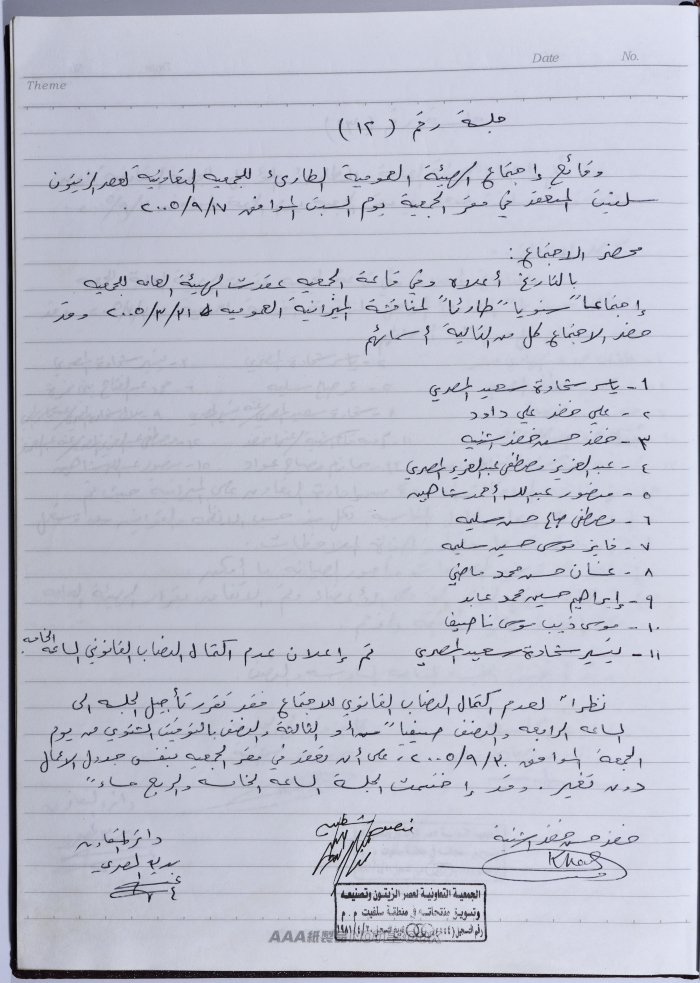 Date No.
Theme
جلسة رقم (١٢)
وقائع إجتماع الهيئة العمومية الطارئ للجمعية التعاونية لعصر الزيتون
سلفيت المنعقد في مقر الجمعية يوم السبت الموافق ٢٠٠٥/٩/١٧.
محضر الاجتماع:
بالتاريخ أعلاه وفي قاعة الجمعيه عقدت الهيئة العامه للجمعيه
إجتماعاً سنوياً طارئاً لمناقشة الميزانية العموميه ٢٠٠٥/٣/٣١ وقد
حضر الاجتماع كل من التالية أسمائهم
١- ياسر شحادة سعيد المصري
٢- علي خضر علي داود
٣- خضر حسن خضر اشتيه
٤- عبد العزيز مصطفى عبد العزيز المصري
٥- منصور عبد الله أحمد شاهين
٦- مصطفى صالح حسن سليمه
٧- فايز موسى حسين سليمه
٨- غسان حسن محمد ماضي
٩- إبراهيم حسين محمد عابد
١٠- موسى ذيب موسى ناصيف
١١- ليسير شحادة سعيد المصري تم إعلان عدم اكتمال النصاب القانوني الساعه الخامسه
نظراً لعدم اكتمال النصاب القانوني للاجتماع فقد تقرر تأجيل الجلسه الى
الساعه الرابعه والنصف صيفياً أو الثالثة والنصف بالتوقيت الشتوي من يوم
الجمعة الموافق ٢٠٠٥/٩/٣٠، على أن تعقد في مقر الجمعيه بنفس جدول الاعمال
دون تغير. وقد إختتمت الجلسة الساعه الخامسه والربع مساءً
خضر حسن خضر اشتية
دائرة التعاون
المصري
الجمعية التعاونية لعصر الزيتون وتصنيعه
وتسويق منتجاته في منطقة سلفيت م. م
رقم التسجيل
AAA